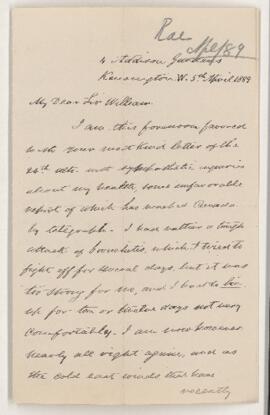 Rae
Apl 5/89
4 Addison Gardens
Kensington W. 5th April 1889
My Dear Sir William
I am this forenoon favored
with your most kind letter of the
24th ulto. with sympathetic inquiries
about my health, some unfavorable
report of which has reached Canada
by telegraph. I had rather a tough
attack of bronchitis, which I tried to
fight off for several days, but it was
too strong for me, and I had to lie
up for ten or twelve days not very
comfortably. I am now however
nearly all right again, and as
the cold east winds that have
recently